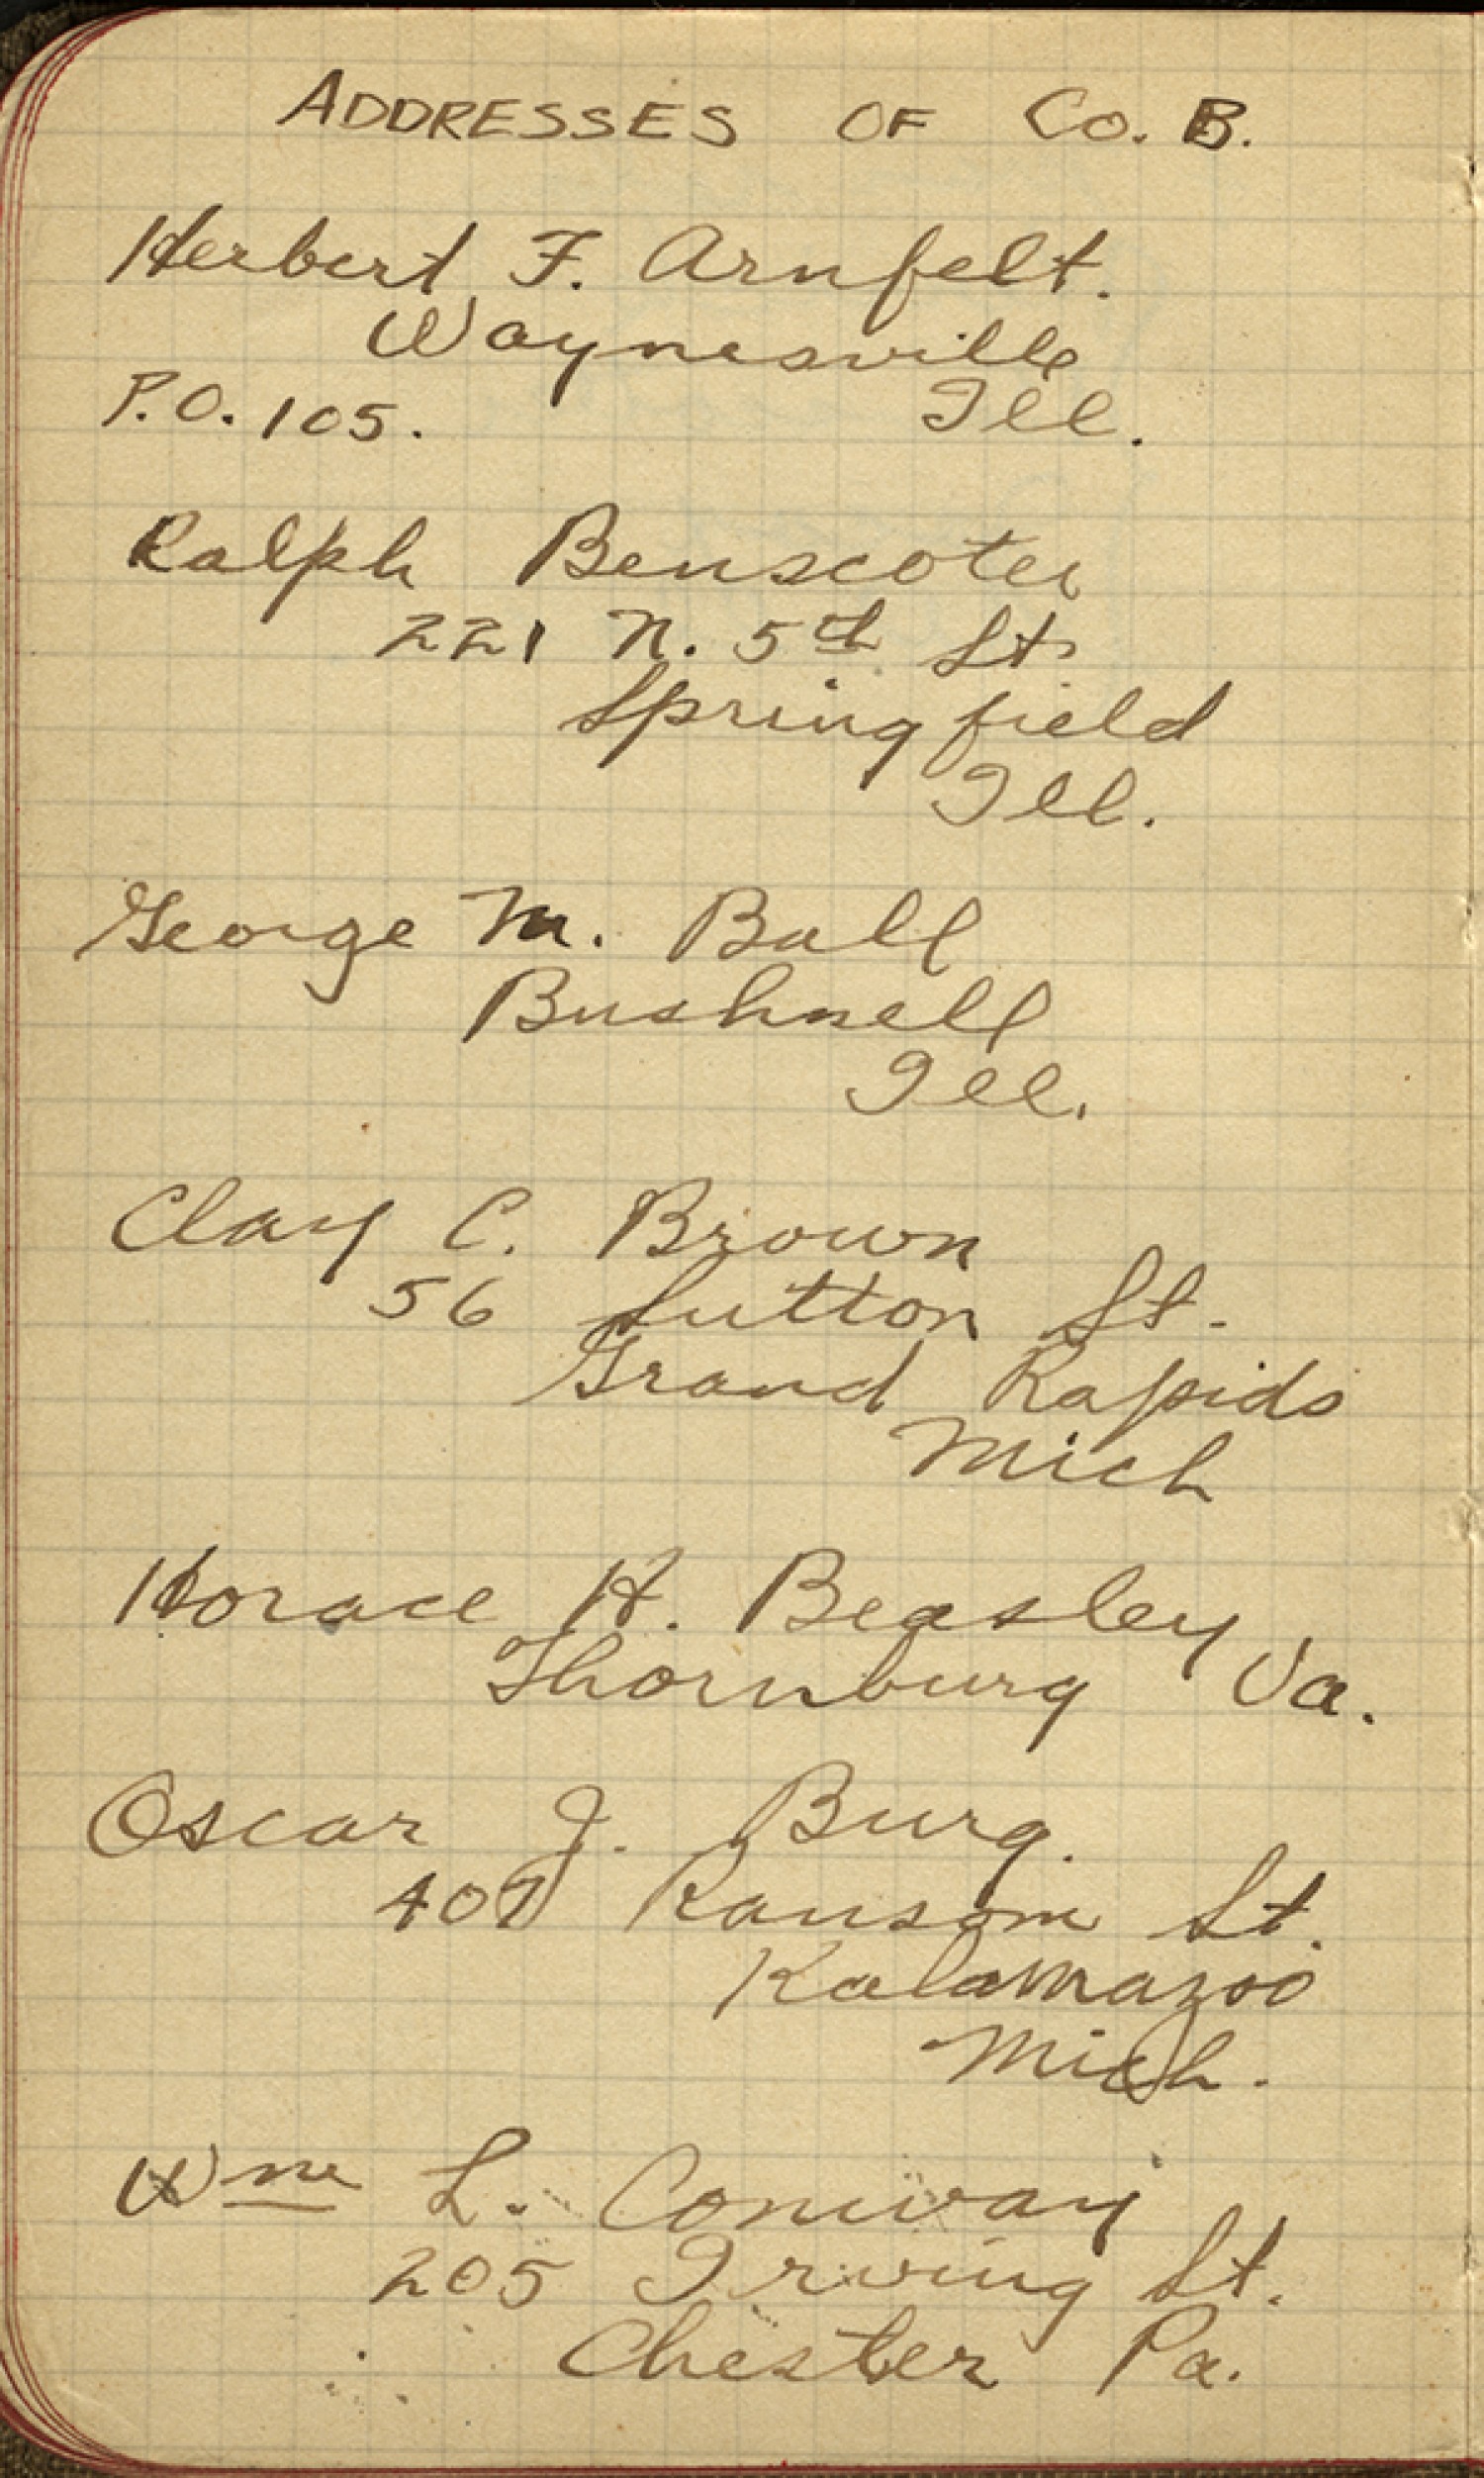 ADDRESSES OF CO. B.
Herbert F. Arnfelt.
Waynesville
P.O. 105. Ill.
Ralph Benscoter
221 N. 5th St.
Springfield
Ill.
George M. Ball
Bushnell
Ill.
Clay C. Brown
56 Sutton St.
Grand Rapids
Mich
Horace H. Beasley
Thornburg Va.
Oscar J. Burg.
407 Ransom St.
Kalamazoo
Mich.
Wm L. Conway
205 Irving St.
Chester Pa.